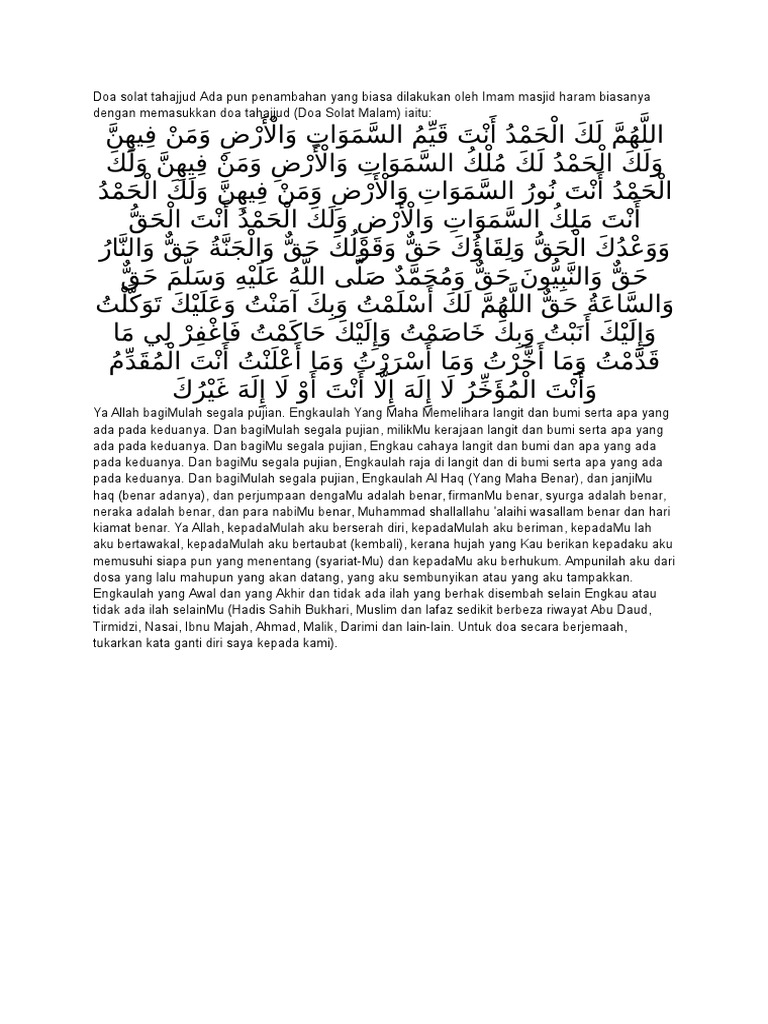 Doa solat tahajjud Ada pun penambahan yang biasa dilakukan oleh Imam masjid haram biasanya
dengan memasukkan doa tahajjud (Doa Solat Malam) iaitu:
اللَّهُمَّ لَكَ الْحَمْدُ أَنْتَ قَيِّمُ السَّمَوَاتِ وَالْأَرْضِ وَمَنْ فِيهِنَّ
وَلَكَ الْحَمْدُ لَكَ مُلْكُ السَّمَوَاتِ وَالْأَرْضِ وَمَنْ فِيهِنَّ وَلَكَ
الْحَمْدُ أَنْتَ نُورُ السَّمَوَاتِ وَالْأَرْضِ وَمَنْ فِيهِنَّ وَلَكَ الْحَمْدُ
أَنْتَ مَلِكُ السَّمَوَاتِ وَالْأَرْضِ وَلَكَ الْحَمْدُ أَنْتَ الْحَقُّ
وَوَعْدُكَ الْحَقُّ وَلِقَاؤُكَ حَقٌّ وَقَوْلُكَ حَقٌّ وَالْجَنَّةُ حَقٌّ وَالنَّارُ
حَقٌّ وَالنَّبِيُّونَ حَقٌّ وَمُحَمَّدٌ صَلَّى اللَّهُ عَلَيْهِ وَسَلَّمَ حَقٌّ
وَالسَّاعَةُ حَقٌّ اللَّهُمَّ لَكَ أَسْلَمْتُ وَبِكَ آمَنْتُ وَعَلَيْكَ تَوَكَّلْتُ
وَإِلَيْكَ أَنَبْتُ وَبِكَ خَاصَمْتُ وَإِلَيْكَ حَاكَمْتُ فَاغْفِرْ لِي مَا
قَدَّمْتُ وَمَا أَخَّرْتُ وَمَا أَسْرَرْتُ وَمَا أَعْلَنْتُ أَنْتَ الْمُقَدِّمُ
وَأَنْتَ الْمُؤَخِّرُ لَا إِلَهَ إِلَّا أَنْتَ أَوْ لَا إِلَهَ غَيْرُكَ
Ya Allah bagiMulah segala pujian. Engkaulah Yang Maha Memelihara langit dan bumi serta apa yang
ada pada keduanya. Dan bagiMulah segala pujian, milikMu kerajaan langit dan bumi serta apa yang
ada pada keduanya. Dan bagiMu segala pujian, Engkau cahaya langit dan bumi dan apa yang ada
pada keduanya. Dan bagiMu segala pujian, Engkaulah raja di langit dan di bumi serta apa yang ada
pada keduanya. Dan bagiMulah segala pujian, Engkaulah Al Haq (Yang Maha Benar), dan janjiMu
haq (benar adanya), dan perjumpaan dengaMu adalah benar, firmanMu benar, syurga adalah benar,
neraka adalah benar, dan para nabiMu benar, Muhammad shallallahu 'alaihi wasallam benar dan hari
kiamat benar. Ya Allah, kepadaMulah aku berserah diri, kepadaMulah aku beriman, kepadaMu lah
aku bertawakal, kepadaMulah aku bertaubat (kembali), kerana hujah yang Kau berikan kepadaku aku
memusuhi siapa pun yang menentang (syariat-Mu) dan kepadaMu aku berhukum. Ampunilah aku dari
dosa yang lalu mahupun yang akan datang, yang aku sembunyikan atau yang aku tampakkan.
Engkaulah yang Awal dan yang Akhir dan tidak ada ilah yang berhak disembah selain Engkau atau
tidak ada ilah selainMu (Hadis Sahih Bukhari, Muslim dan lafaz sedikit berbeza riwayat Abu Daud,
Tirmidzi, Nasai, Ibnu Majah, Ahmad, Malik, Darimi dan lain-lain. Untuk doa secara berjemaah,
tukarkan kata ganti diri saya kepada kami).